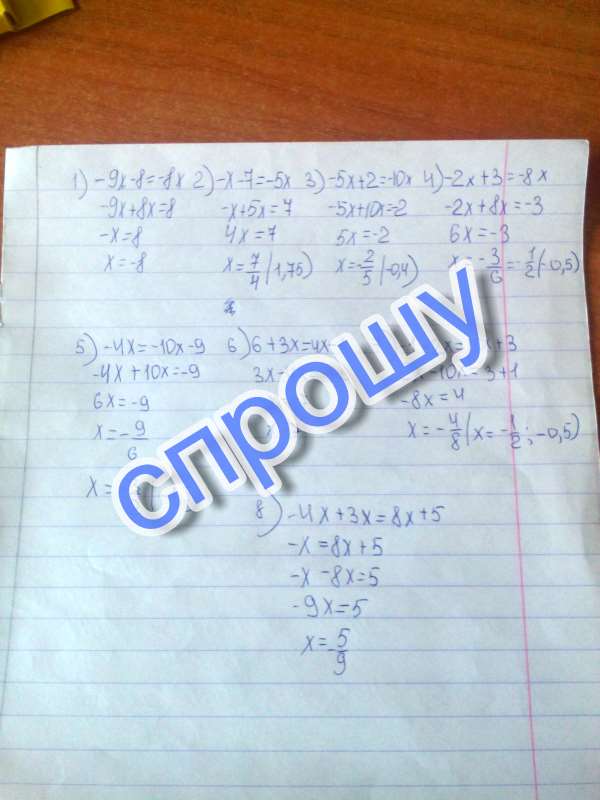 1) -9x-8=-8x 2) -x-7=-5x 3) -5x+2=-10x 4) -2x+3=-8x
-9x+8x=8 -x+5x=7 -5x+10x=-2 -2x+8x=-3
-x=8 4x=7 5x=-2 6x=-3
x=-8 x=7/4 (1,75) x=-2/5 (-0,4) x=-3/6=-1/2 (-0,5)
5) -4x=-10x-9 6) 6+3x=4x
-4x+10x=-9 3x
6x=-9 -8x=4
x=-9/6 x=-4/8 (x=-1/2; -0,5)
x=
спрошу
8) -4x+3x=8x+5
-x=8x+5
-x-8x=5
-9x=5
x=-5/9